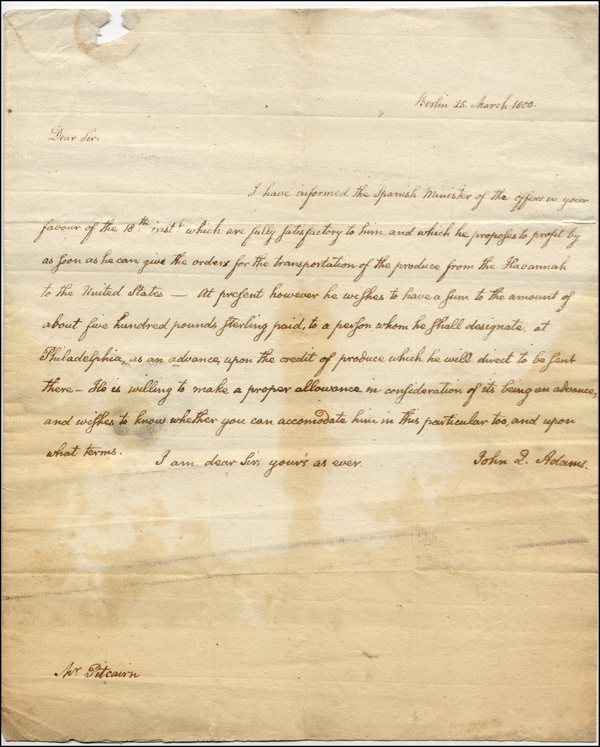 Berlin 25. March 1800.
Dear Sir.
I have informed the Spanish Minister of the offers in your
favour of the 18th inst.t which are fully satisfactory to him, and which he proposes to profit by
as soon as he can give the orders for the transportation of the produce from the Havannah
to the United States — At present however he wishes to have a sum to the amount of
about five hundred pounds sterling paid, to a person whom he shall designate at
Philadelphia, as an advance, upon the credit of produce which he will direct to be sent
there — He is willing to make a proper allowance in consideration of its being an advance,
and wishes to know whether you can accomodate him in this particular too, and upon
what terms.
I am, dear Sir, your's as ever.
John Q. Adams.
Mr Pitcairn